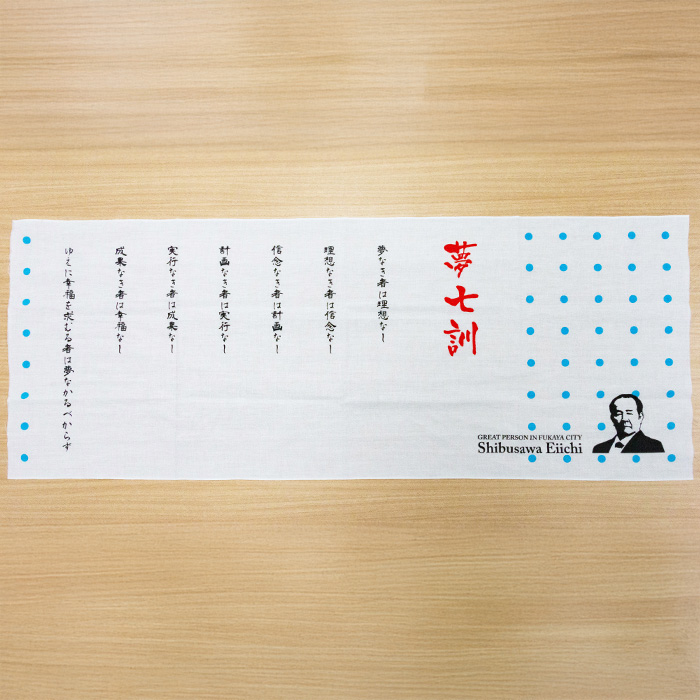 夢七訓
夢なき者は理想なし
理想なき者は信念なし
信念なき者は計画なし
計画なき者は実行なし
実行なき者は成果なし
成果なき者は幸福なし
ゆえに幸福を求むる者は夢なかるべからず
GREAT PERSON IN FUKAYA CITY
Shibusawa Eiichi